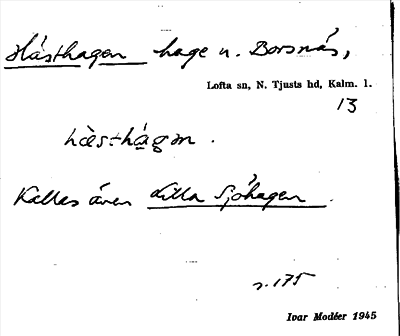 Hästhagen hage u. Borsnäs,
Lofta sn, N. Tjusts hd, Kalm. l.
13
hàs:thágεn.
Kallas även Lilla Sjöhagen.
s. 175
Ivar Modéer 1945